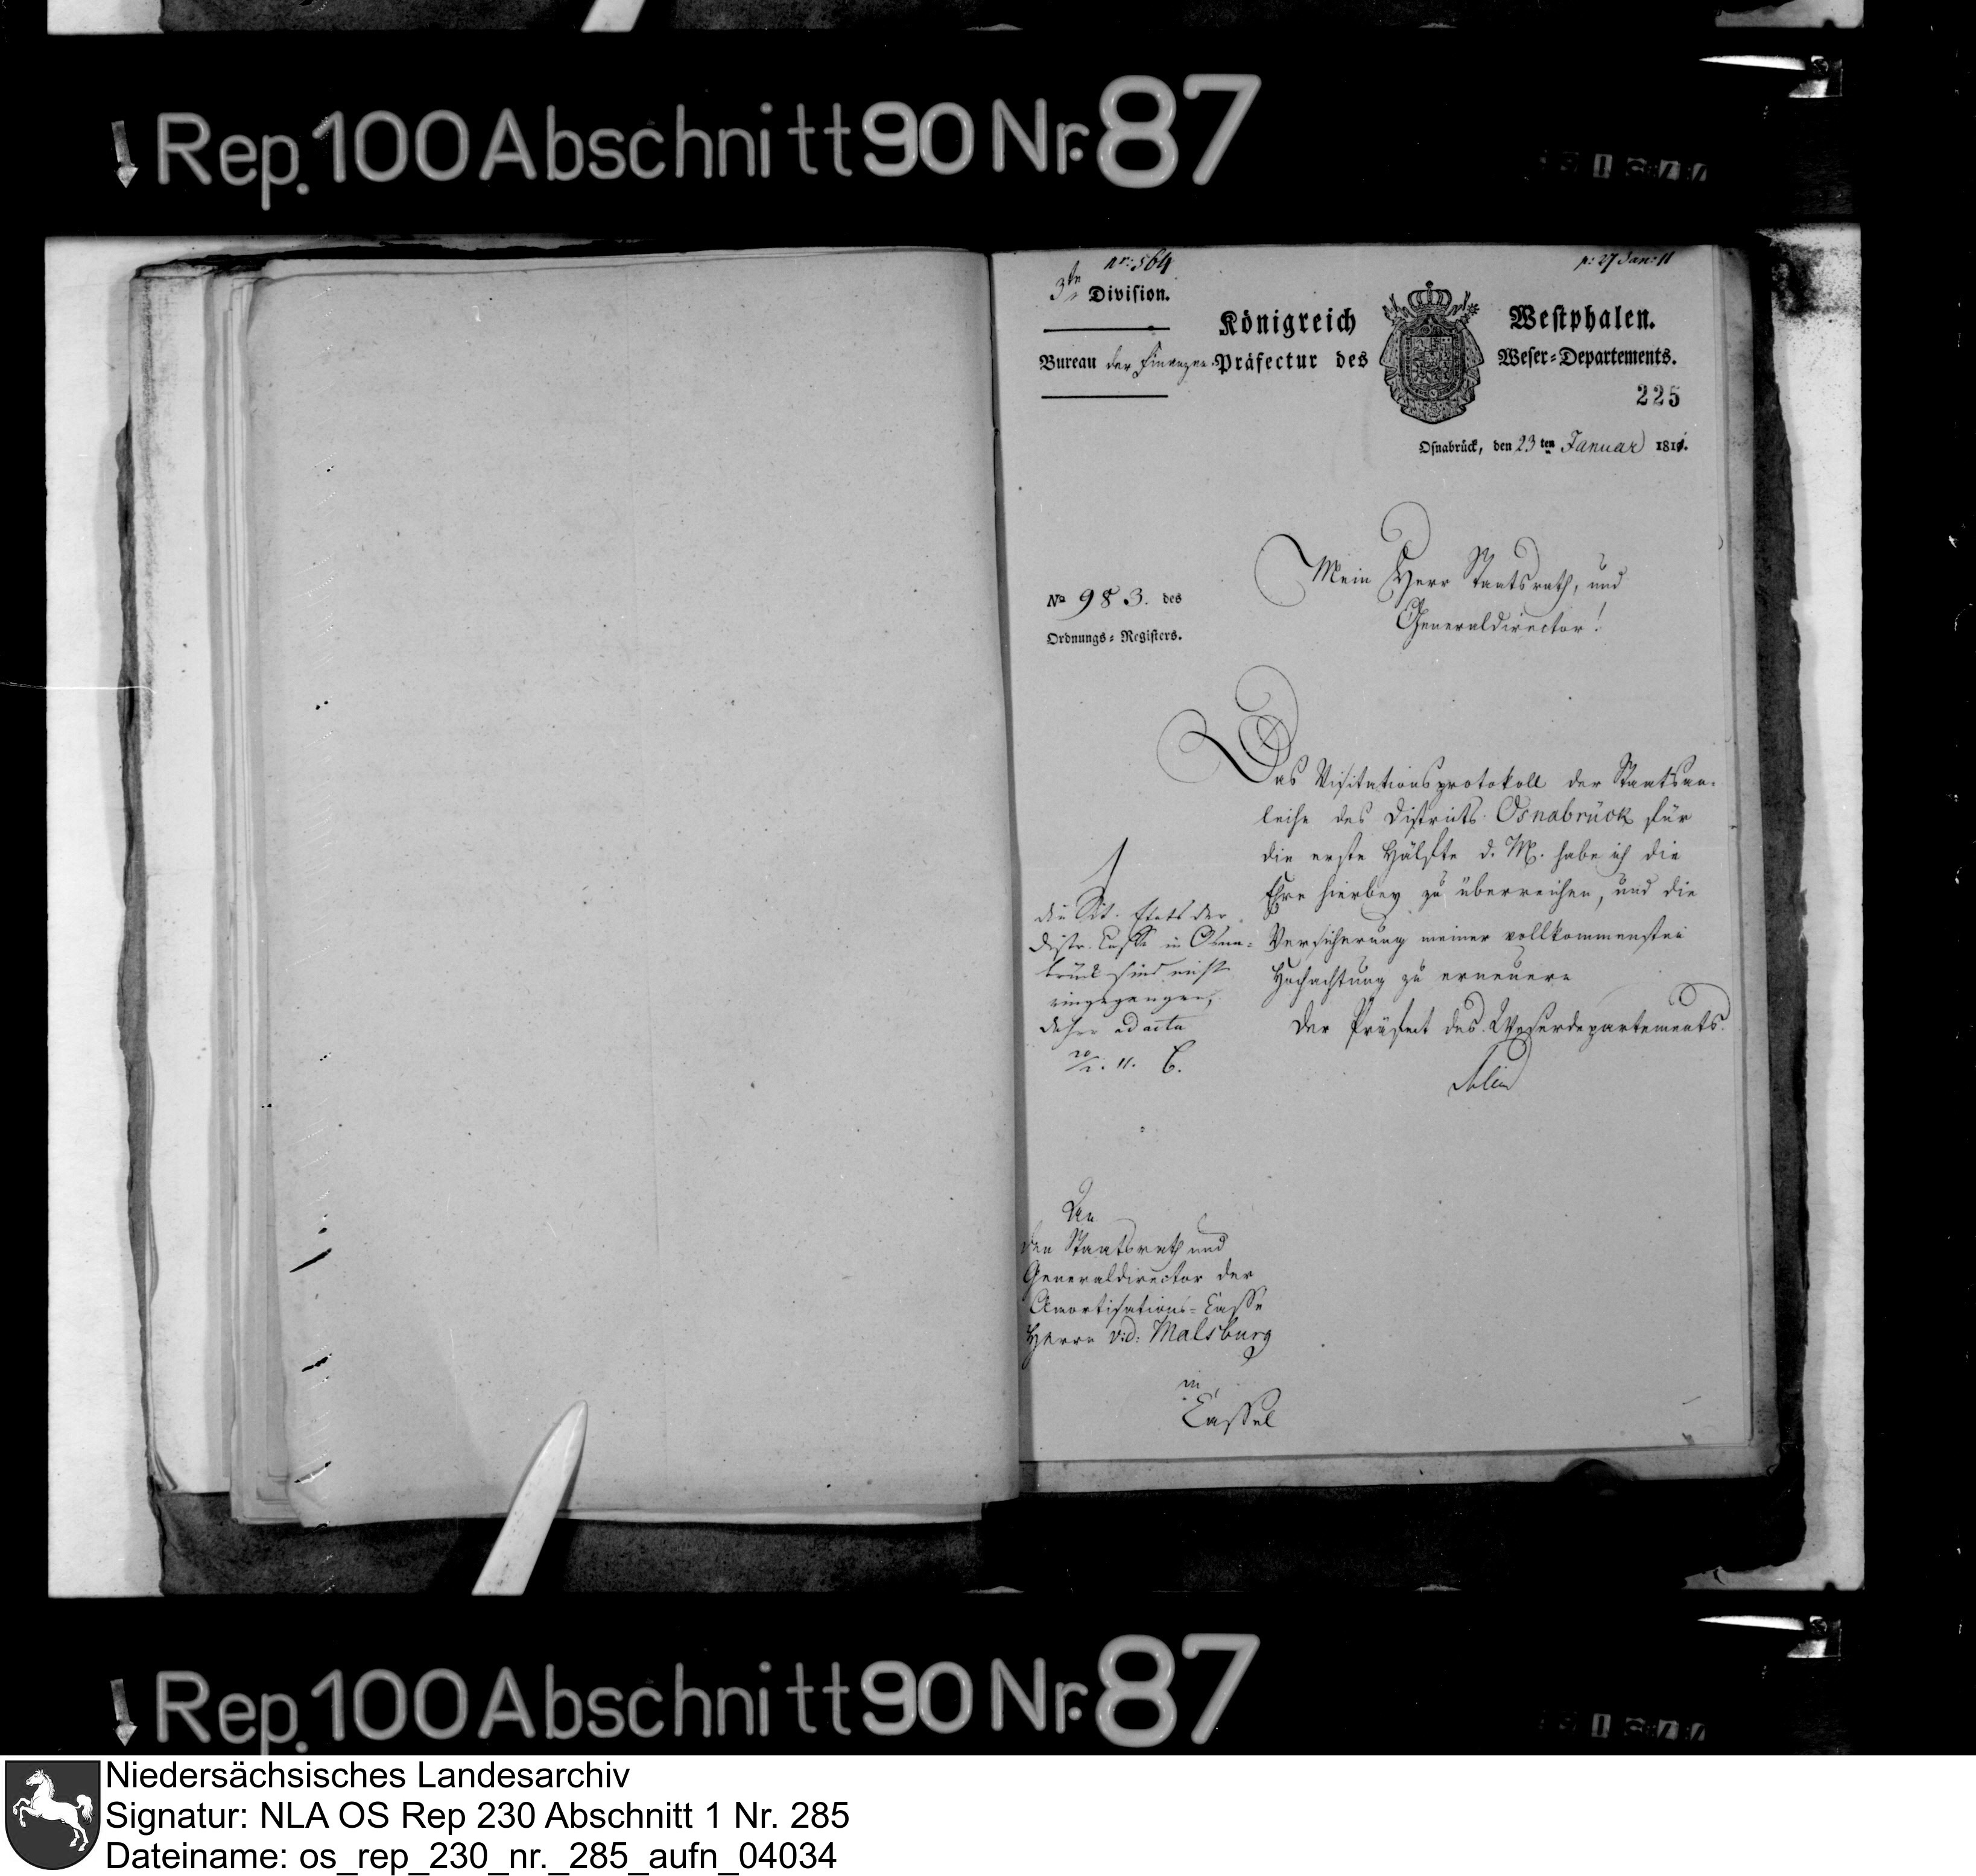 Rep. 100 Abschnitt 90 Nr. 87
nr: 564
p: 27 Jan: 11
3te Division.
Königreich Westphalen.
Bureau der Finanzen
Präfectur des Weser-Departements.
225
Osnabrück, den 23 ten Januar 1811.
Mein Herr Staatsrath, und
Generaldirector!
No 983. des
Ordnungs-Registers.
Das Visitationsprotokoll der Staatsan-
leihe des Districts Osnabrück für
die erste Hälfte d. M. habe ich die
Ehre hierbey zu überreichen, und die
Versicherung meiner vollkommensten
Hochachtung zu erneuern
Der Präfect des Weserdepartements.
die Sit. Etats der
Distr. Casse in Osna-
brück sind nicht
eingegangen,
daher ad acta
An
den Staatsrath und
Generaldirector der
Amortisations-Casse
Herrn v: d: Malsburg
in
Cassel
Rep. 100 Abschnitt 90 Nr. 87
Niedersächsisches Landesarchiv
Signatur: NLA OS Rep 230 Abschnitt 1 Nr. 285
Dateiname: os_rep_230_nr._285_aufn_04034